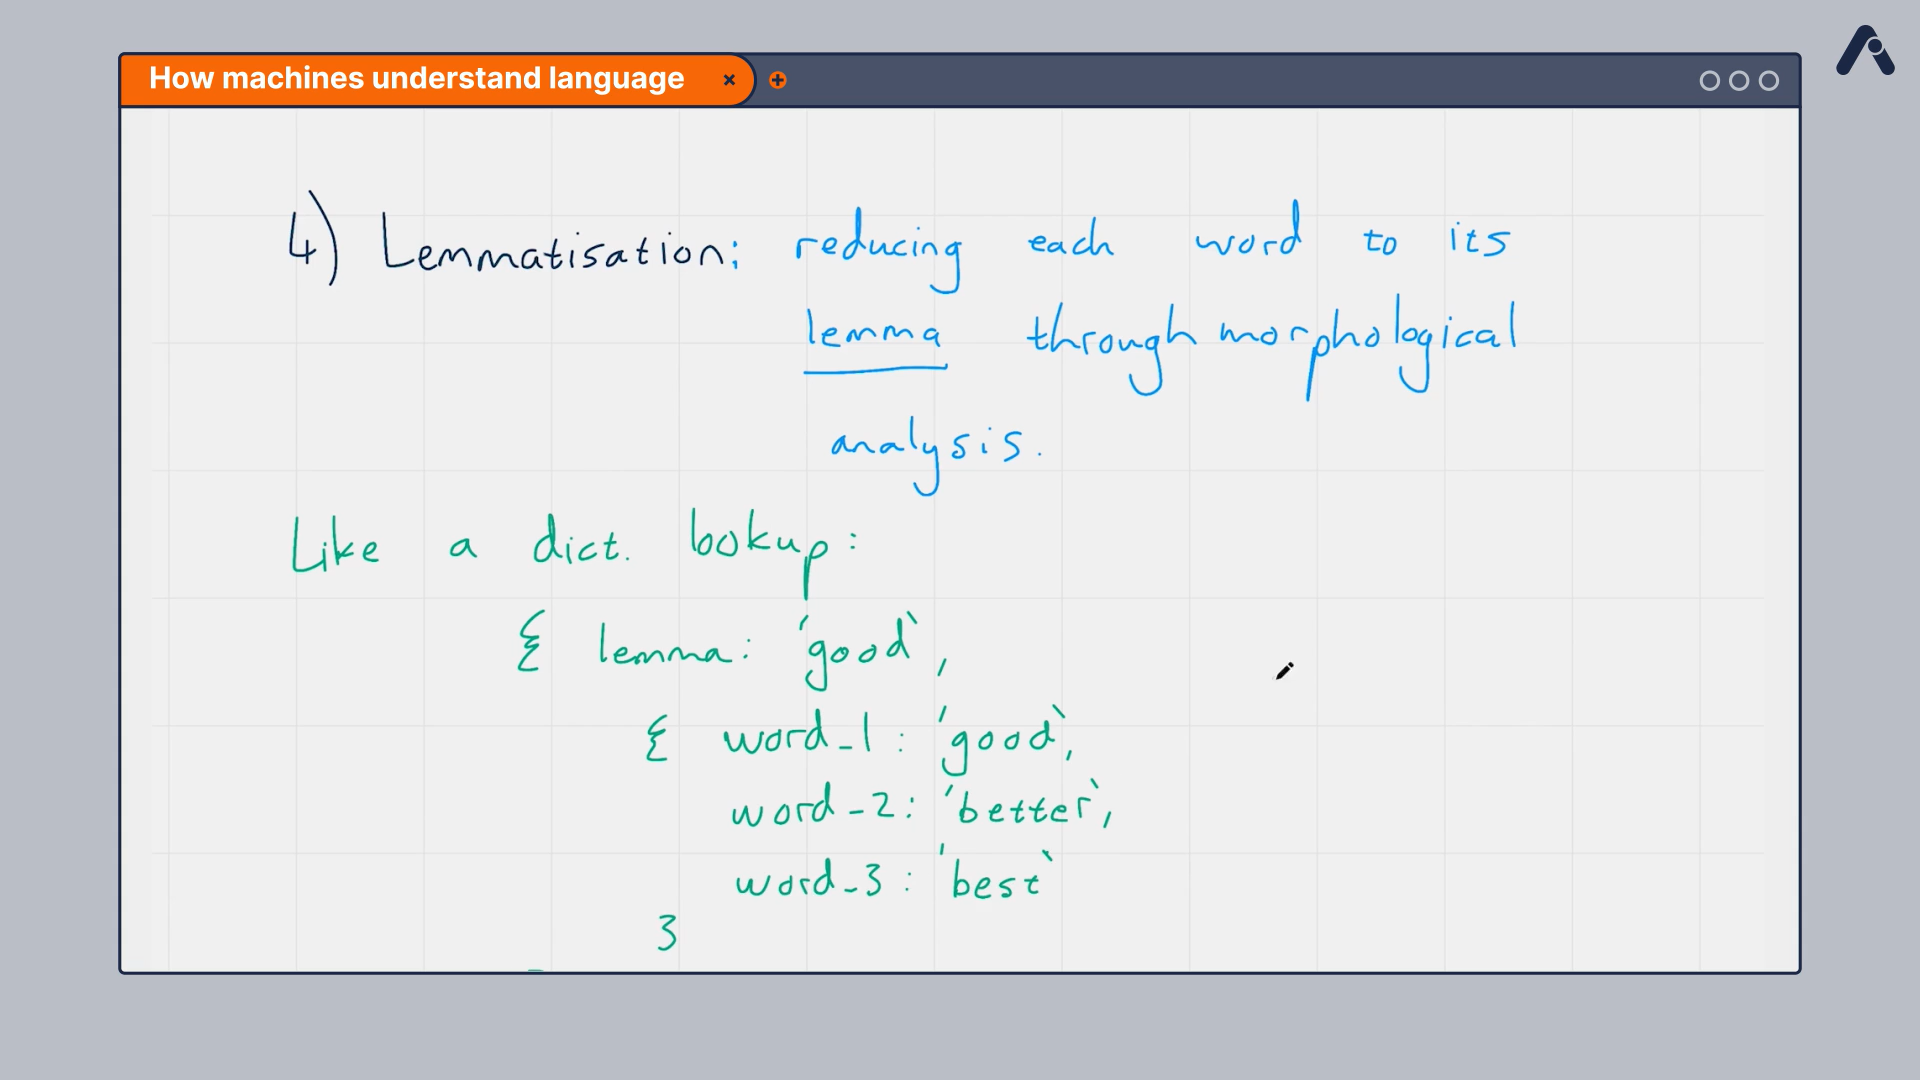 How machines understand language
4) Lemmatisation: reducing each word to its
lemma through morphological
analysis.
Like a dict. lookup:
{ lemma: 'good`,
{ word_1 : 'good`,
word_2: 'better`,
word_3 : 'best`
}